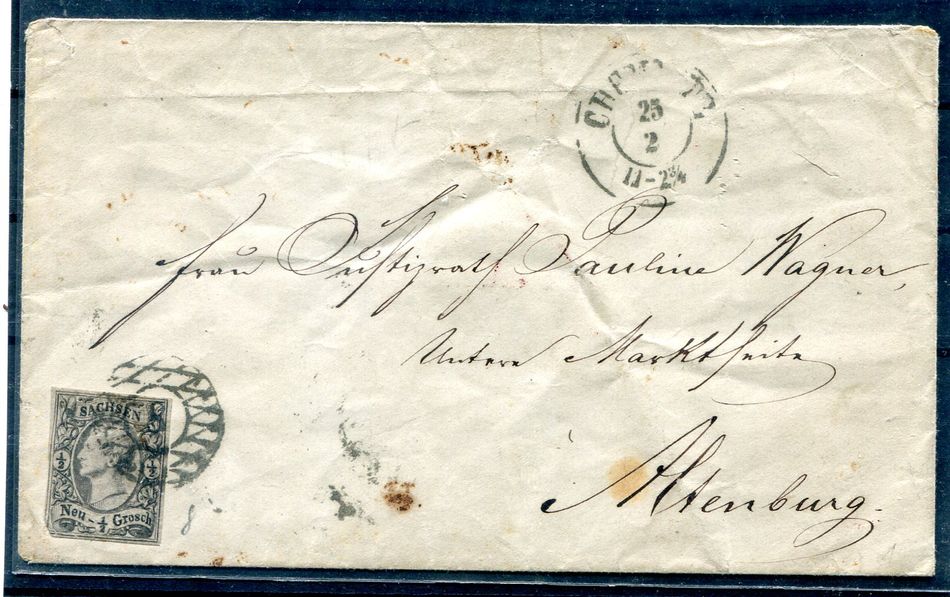 25
2
11-2¾
Frau Justizrath Pauline Wagner,
Untere Marktseite
Altenburg.
SACHSEN
½ ½
Neu-½ Grosch
8